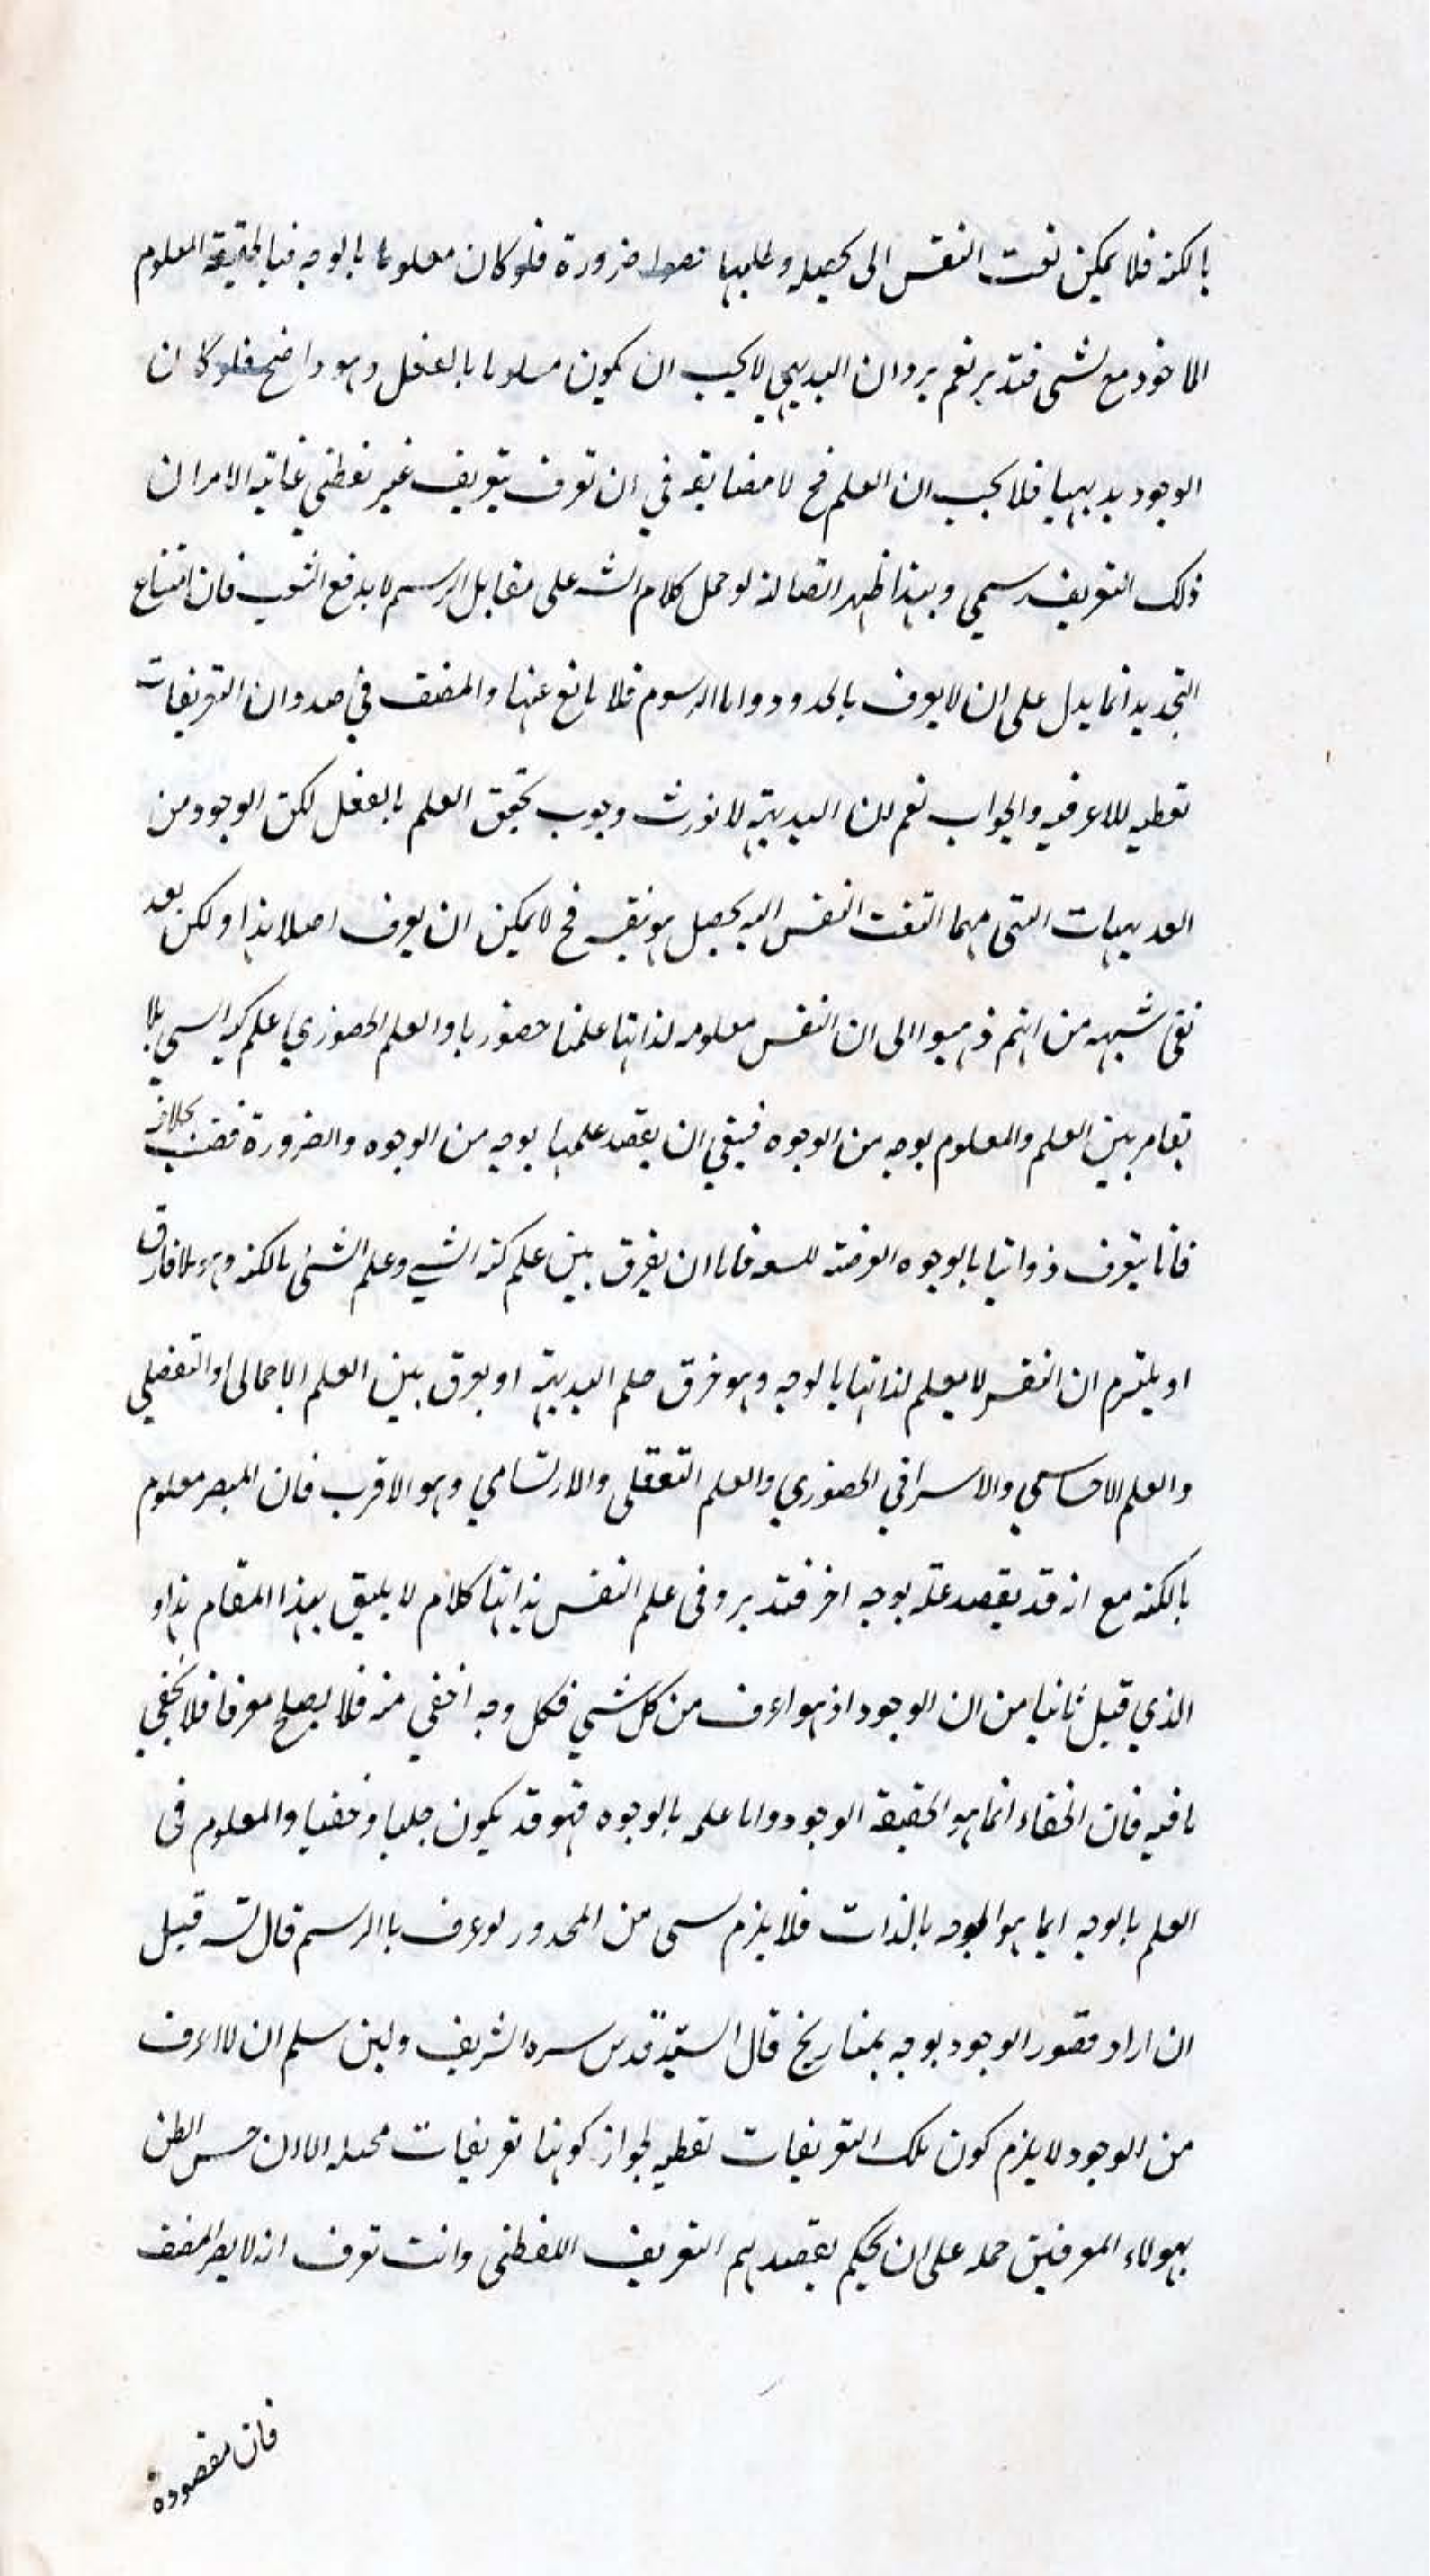 بالكنه فلا يمكن تفت النفس الى تحصيله وطلبها ضرورة فلو كان معلوما بالوجه فبالحقيقة المعلوم
الماخوذ مع لشى فتدبر نعم يرد ان البديهي لا يجب ان يكون معلوما بالفعل وهو واضح فلو كان
الوجود بديهيا فلا يجب ان العلم فح لا مضايقه في ان تعرف بتعريف غير لفظي غاية الامر ان
ذلك التعريف رسمي وبهذا ظهر ايضا انه لو حمل كلام الشه على مقابل الرسم لا يدفع الشعب فان امتناع
التحديد انما يدل على ان لا يعرف بالحدود واما الرسوم فلا مانع عنها والمصنف في صدد ان التعريفات
لفظيه للاعرفيه والجواب نعم ان البديهية لا تورث وجوب تحقق العلم بالفعل لكن الوجود من
البديهيات التى مهما التفت النفس اليه يحصل بنفسه فح لا يمكن ان يعرف اصلا هذا ولكن بعد
بقى شبهه من انهم ذهبوا الى ان النفس معلومه لذاتها علما حضوريا والعلم الحضوري علم كنه الشى بلا
تغاير بين العلم والمعلوم بوجه من الوجوه فينبغي ان يقصد علمها بوجه من الوجوه والضرورة قضت بخلافه
فانا نتعرف ذواتنا بالوجوه العرضية فاما ان يفرق بين علم كنه الشي وعلم الشئ بالكنه وهو بلا فارق
او يلتزم ان النفس لا يعلم لذاتها بالوجه وهو خرق حكم البديهة او يفرق بين العلم الاجمالى او التفصلي
والعلم الاحساسي والاسراقي الحضوري والعلم التعقلى والارتسامي وهو الاقرب فان المبصر معلوم
بالكنه مع انه قد يقصد علمه بوجه اخر فتدبر وفى علم النفس بذاتها كلام لا يليق بهذا المقام هذا و
الذي قيل ثانيا من ان الوجود اذ هو اعرف من كل شي فكل وجه اخفي منه فلا يصلح معرفا فلا يخفي
ما فيه فان الخفاء انما هو الحقيقة الوجود واما علمه بالوجوه فهو قد يكون جليا وخفيا والمعلوم فى
العلم بالوجه انما هو الوجه بالذات فلا يلزم شى من المحدور لو عرف باالرسم قال الشه قيل
ان اراد تصور الوجود بوجه يمتاز الخ قال السيد قدس سره الشريف ولين سلم ان لا اعرف
من الوجود لا يلزم كون تلك التعريفات لفظيه لجواز كونها تعريفات محيله الا ان حسن الظن
بهولاء المعرفين حمله على ان يحكم بقصدهم التعريف اللفظى وانت تعرف انه لا يضر المصنف
فان مقصوده